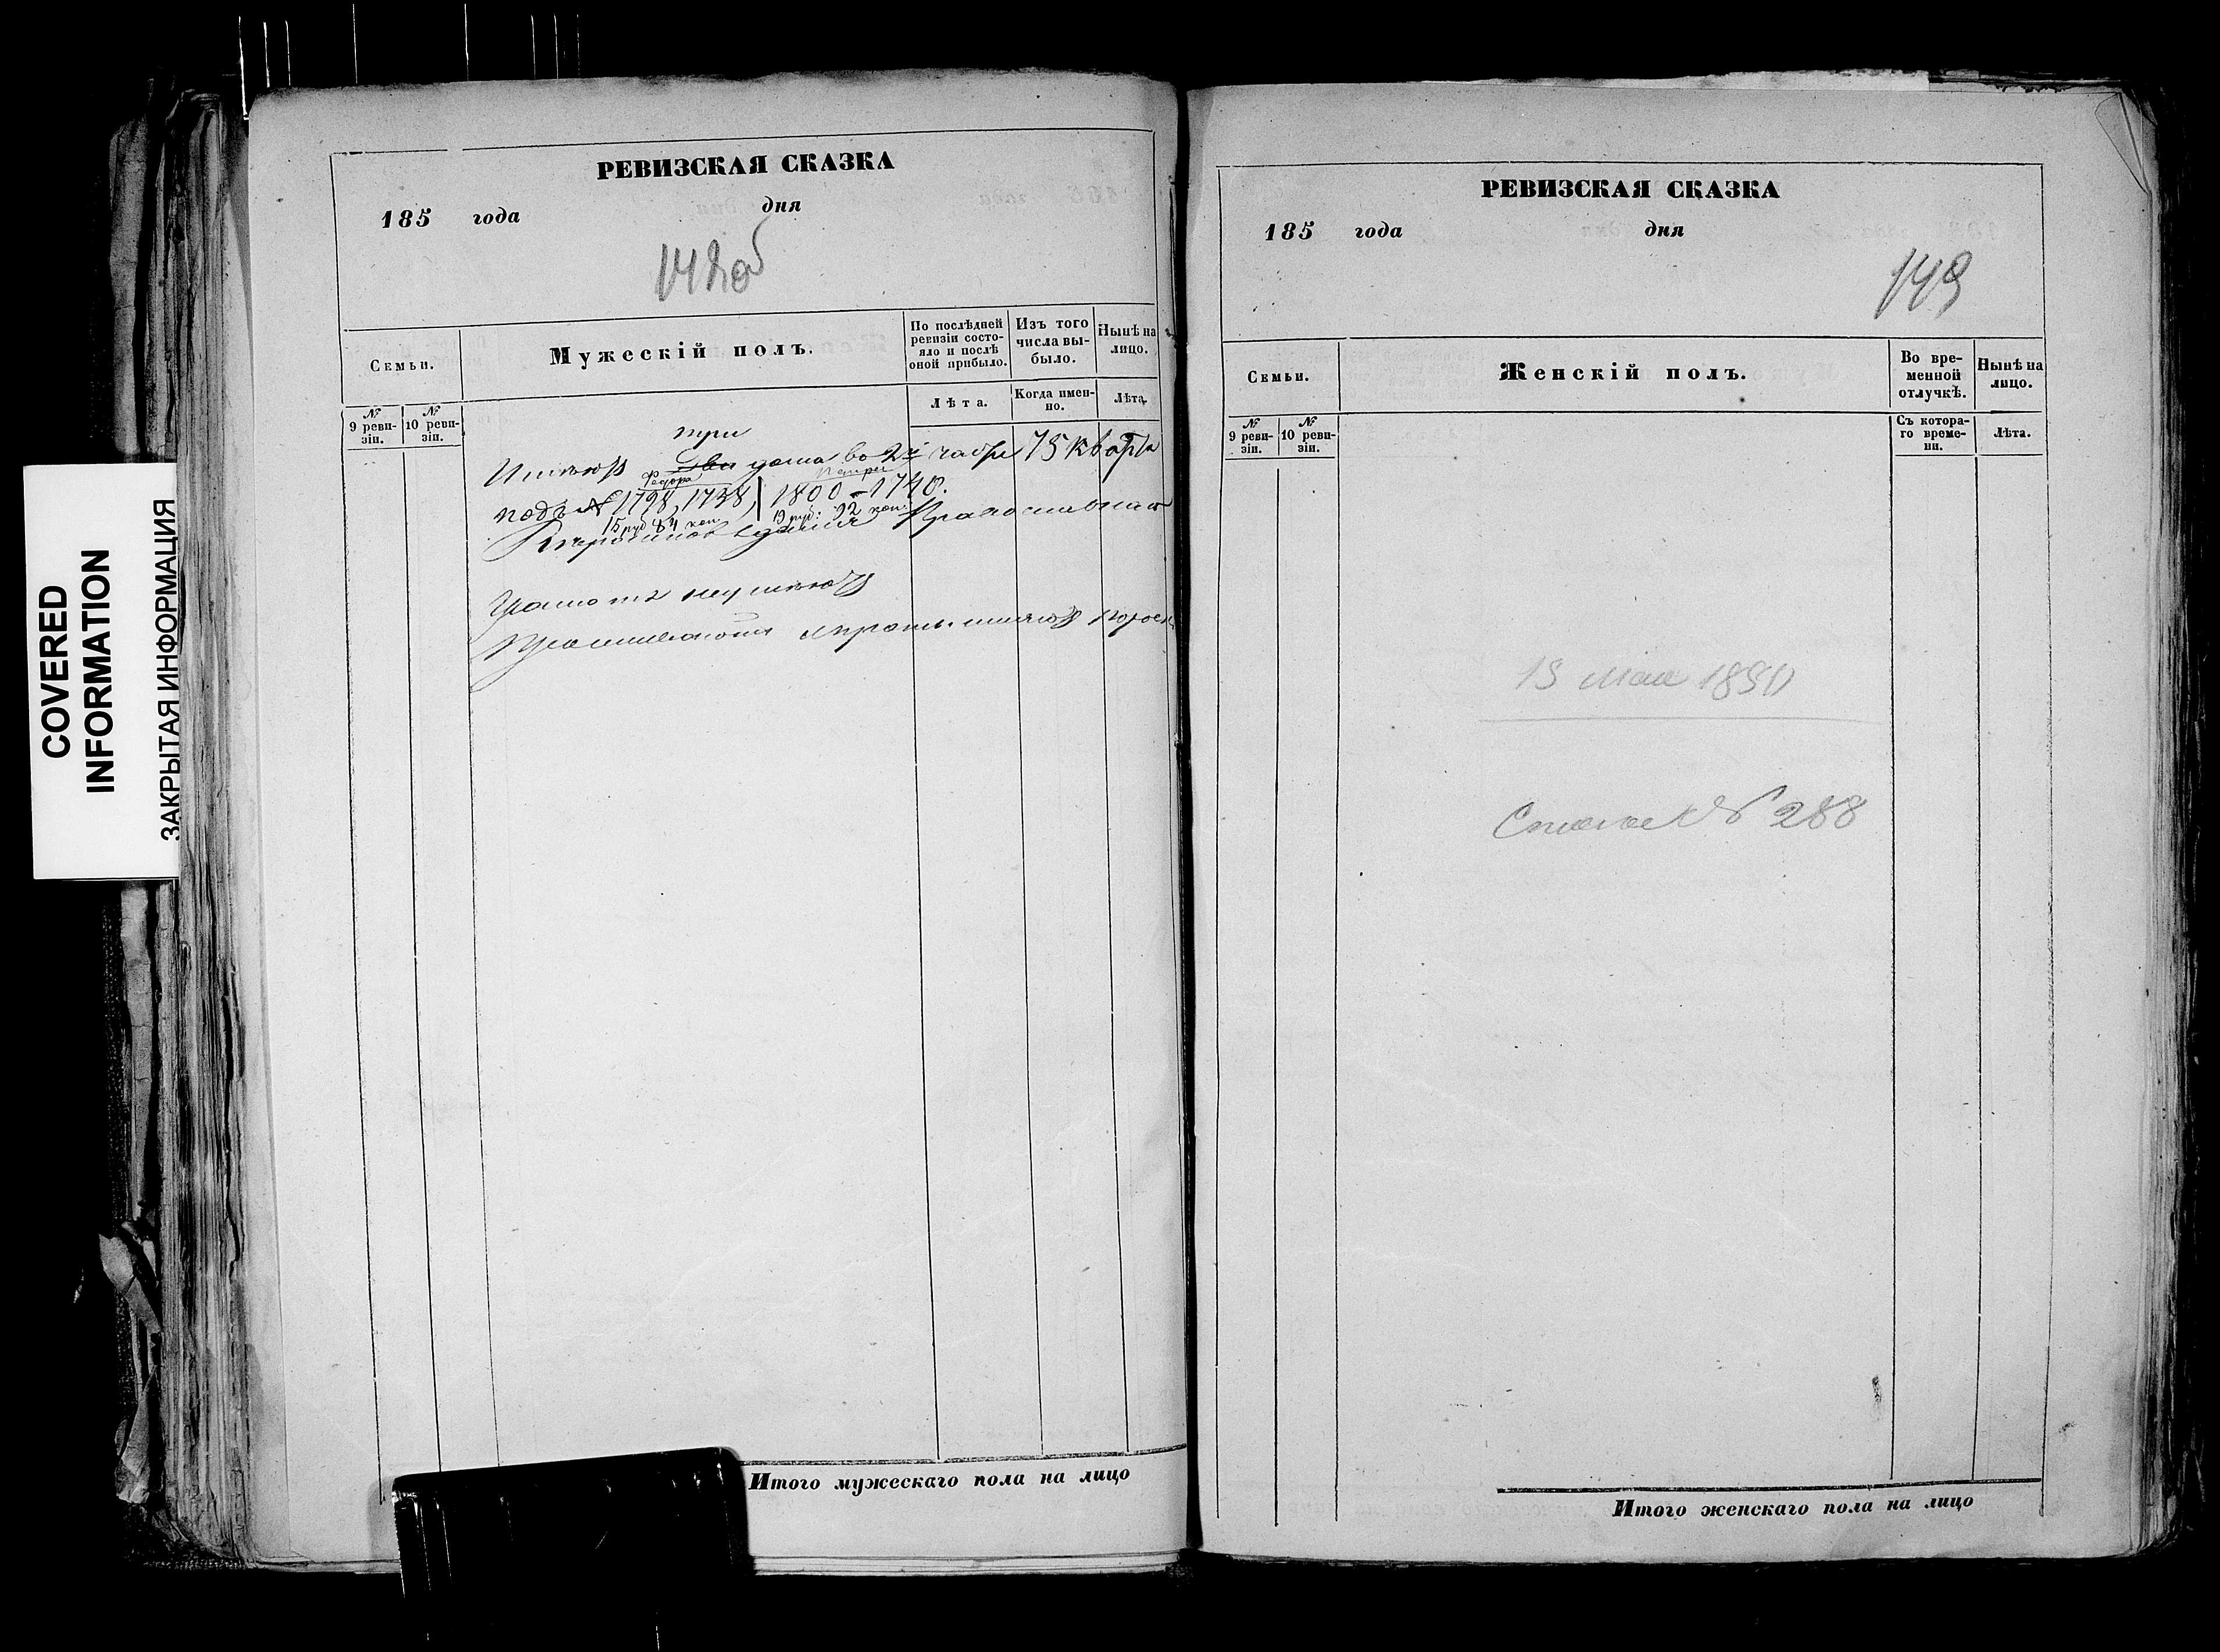 COVERED
INFORMATION
ЗАКРЫТАЯ ИНФОРМАЦИЯ
РЕВИЗСКАЯ СКАЗКА
185 года дня
142об
Семьи.
Мужескій полъ.
По послѣдней ревизіи состояло и послѣ оной прибыло.
Изъ того числа выбыло.
Нынѣ на лицо.
Лѣта.
Когда именно.
Лѣта.
№ 9 ревизіи.
№ 10 ревизіи.
три
Имѣютъ Два дома во 2й части 75 кварта
Федора
подъ № 1798, 1738, 1800 - 1740.
15 руб 84 коп 19 руб: 92 коп:
Православнаго
Грамотѣ неумѣютъ
РЕВИЗСКАЯ СКАЗКА
185 года дня
149
Семьи.
Женскій полъ.
Во временной отлучкѣ.
Нынѣ на лицо.
№ 9 ревизіи.
№ 10 ревизіи.
Съ котораго времени.
Лѣта.
15 Мая 1890
№ 288
Итого мужескаго пола на лицо
Итого женскаго пола на лицо